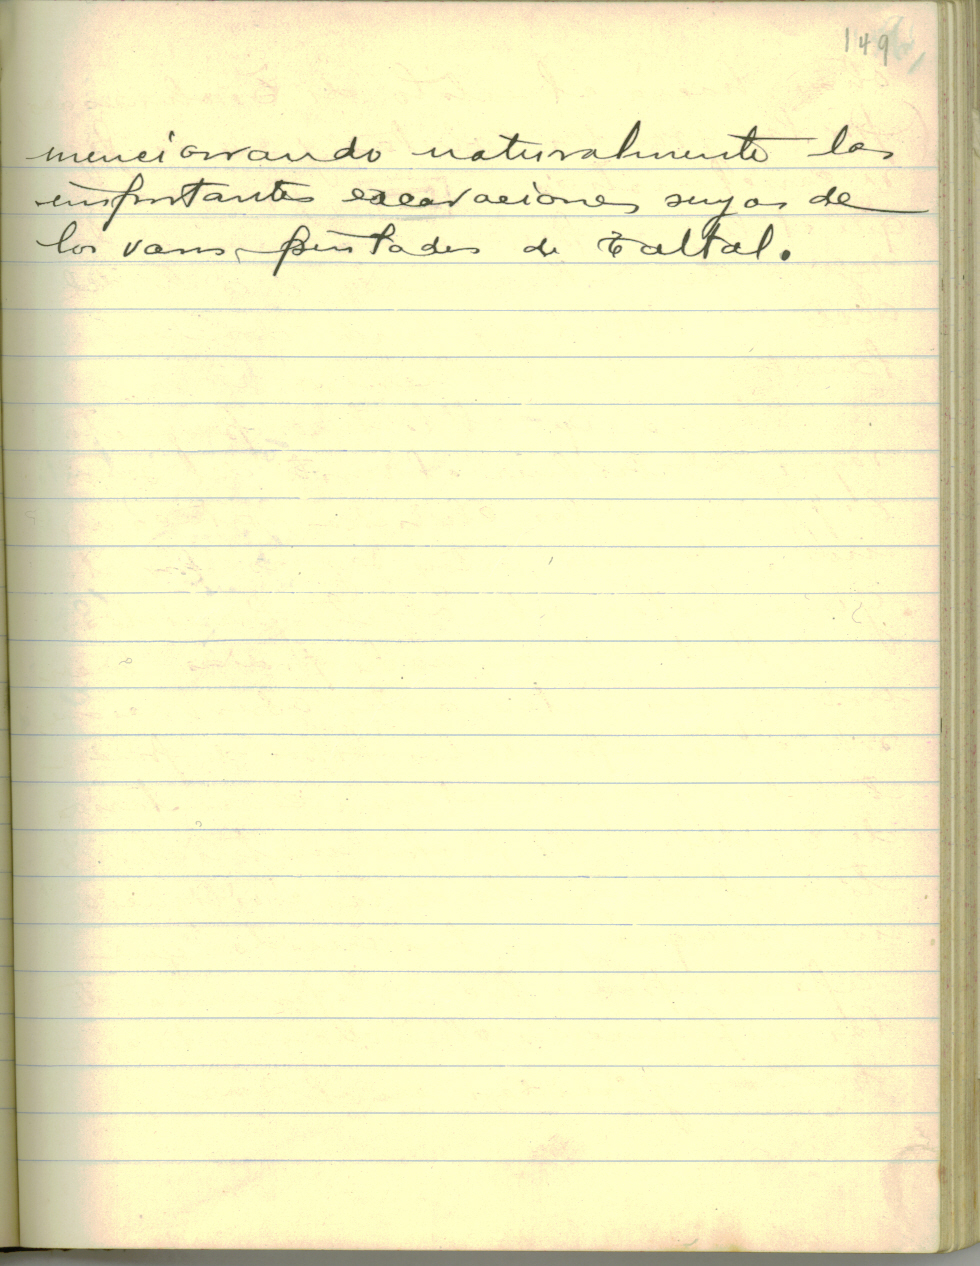 149
mencionando naturalmente las
importantes excavaciones suyas de
los vasos pintados de Taltal.